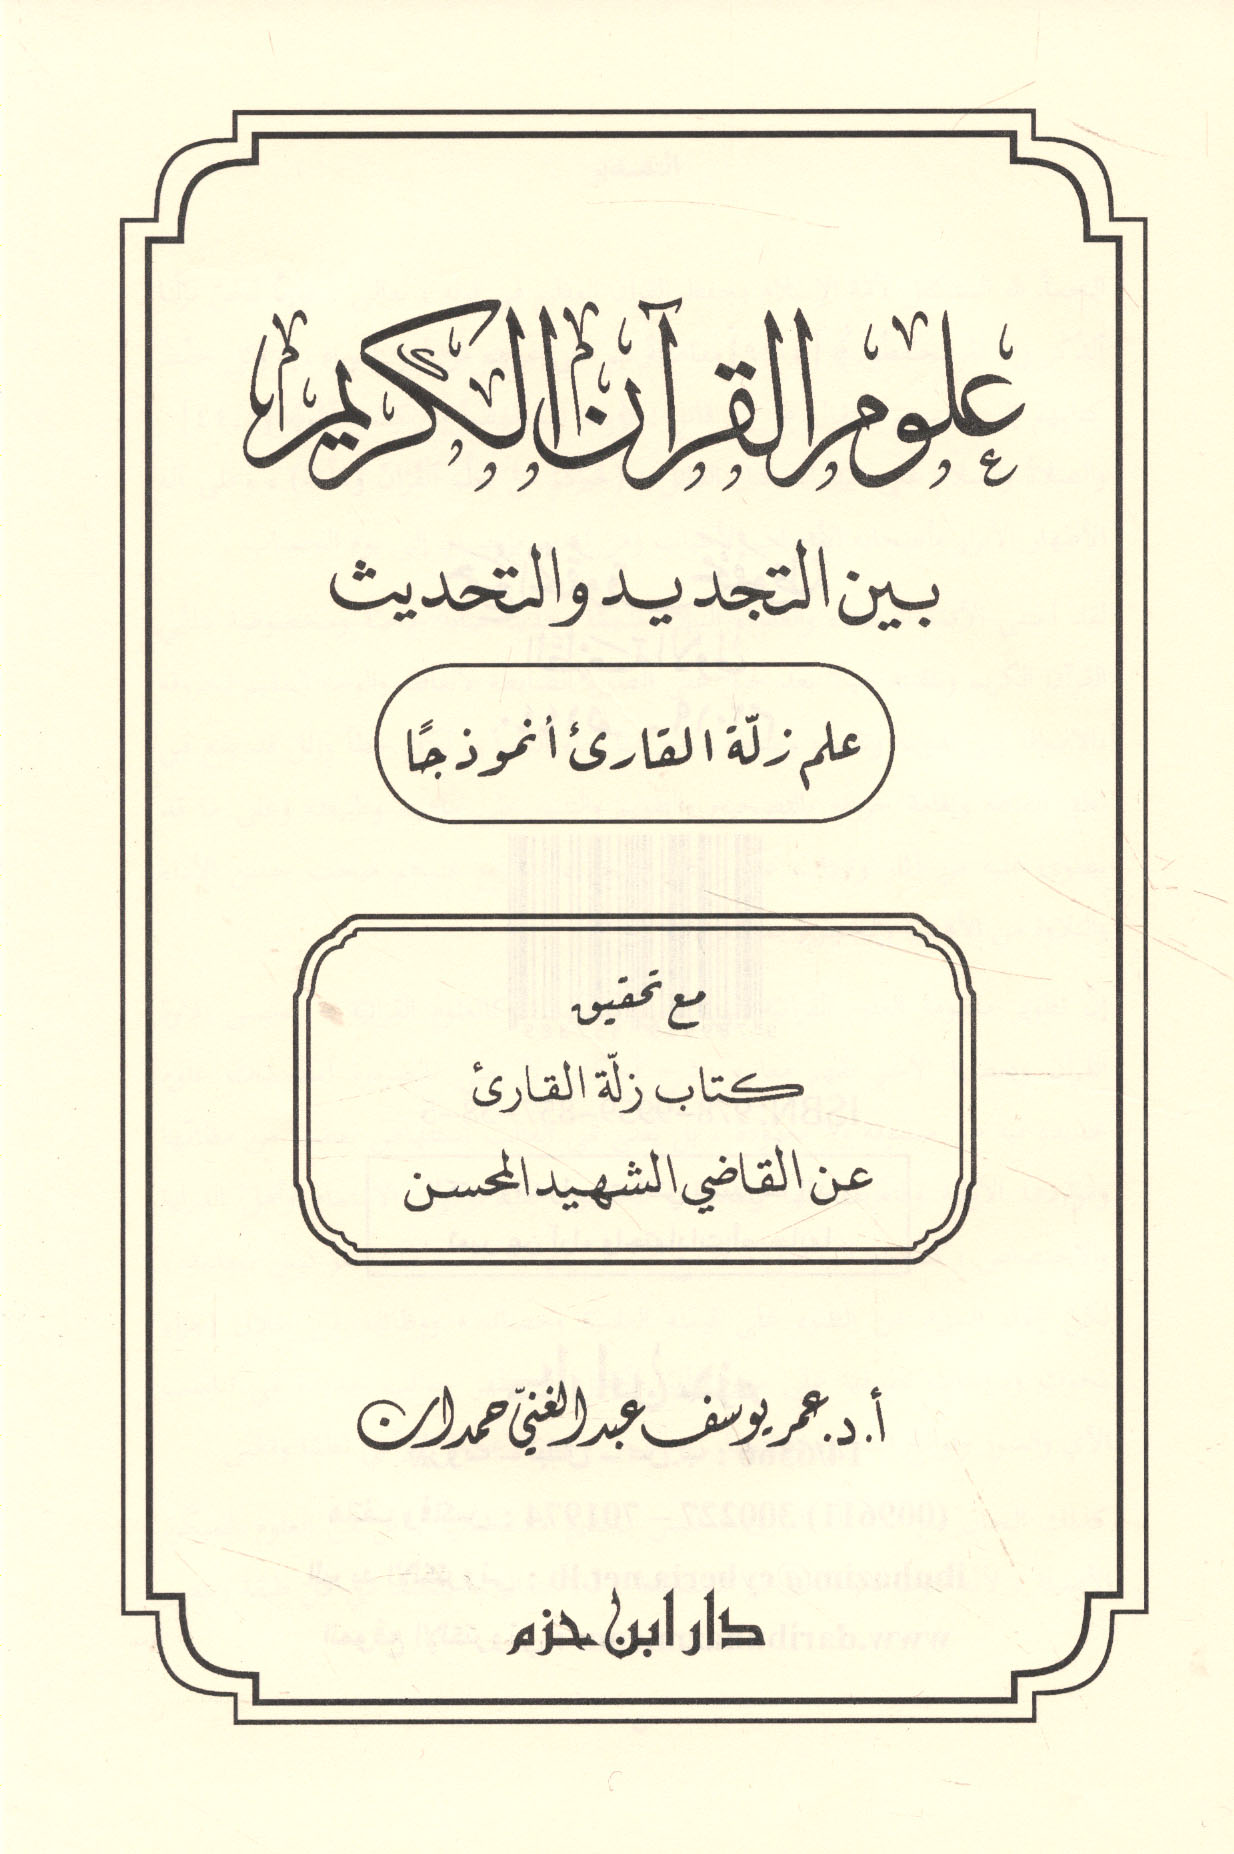 علوم القرآن الكريم
بين التجديد والتحديث
علم زلّة القارئ أنموذجًا
مع تحقيق
كتاب زلّة القارئ
عن القاضي الشهيد المحسن
أ. د. عمر يوسف عبد الغنيّ حمدان
دار ابن حزم